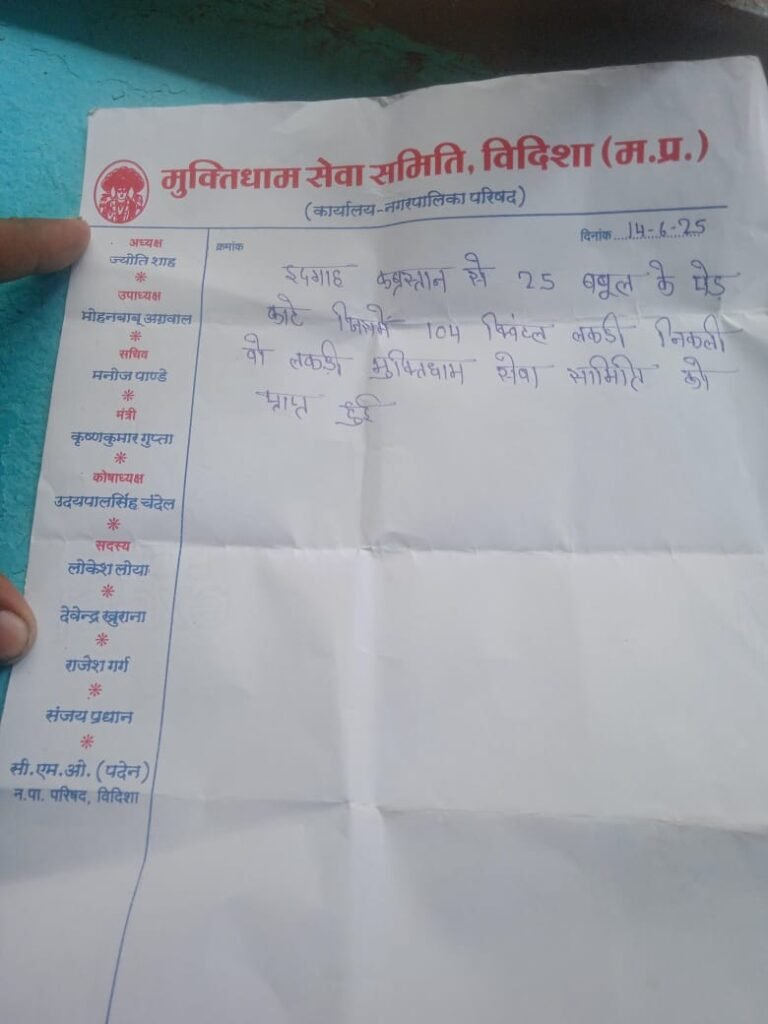 मुक्तिधाम सेवा समिति, विदिशा (म.प्र.)
(कार्यालय-नगरपालिका परिषद)
क्रमांक
दिनांक....14-6-25
अध्यक्ष
ज्योति शाह
उपाध्यक्ष
मोहनबाबू अग्रवाल
सचिव
मनोज पाण्डे
मंत्री
कृष्णकुमार गुप्ता
कोषाध्यक्ष
उदयपालसिंह चंदेल
सदस्य
लोकेश लोया
देवेन्द्र खुराना
राजेश गर्ग
संजय प्रधान
सी.एम.ओ. (पदेन)
न.पा. परिषद, विदिशा
इदगाह कब्रस्तान से 25 बबूल के पेड़
काटे जिसमें 104 क्विंटल लकडी निकली
वो लकड़ी मुक्तिधाम सेवा समिति को
प्राप्त हुई